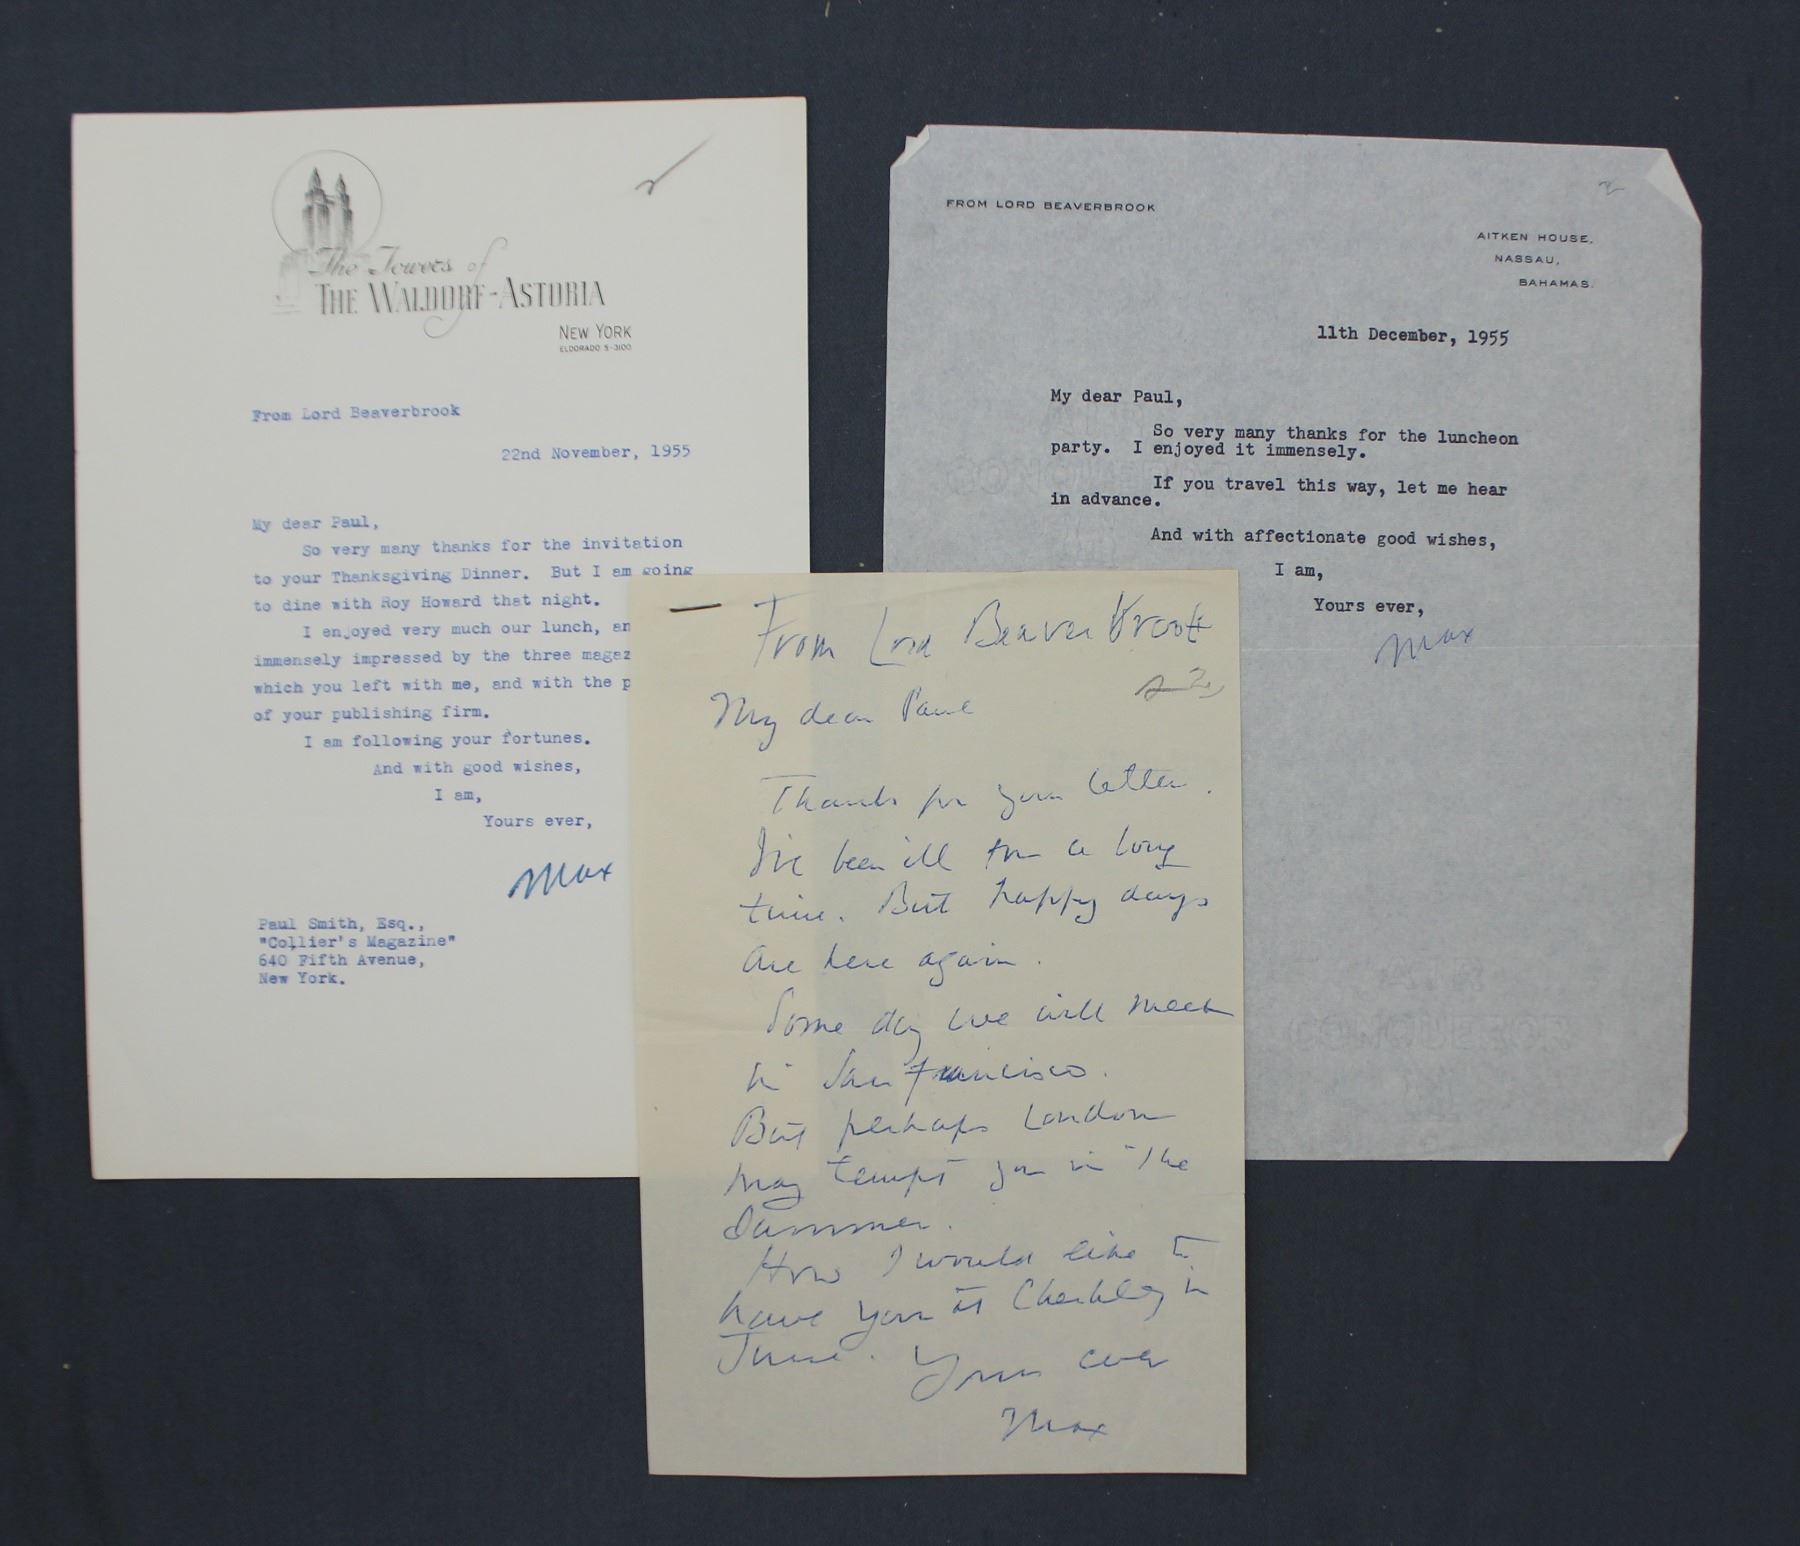 The Towers of
THE WALDORF-ASTORIA
NEW YORK
ELDORADO 5-3100
From Lord Beaverbrook
22nd November, 1955
My dear Paul,
So very many thanks for the invitation
to your Thanksgiving Dinner. But I am going
to dine with Roy Howard that night.
I enjoyed very much our lunch, an
immensely impressed by the three magaz
which you left with me, and with the p
of your publishing firm.
I am following your fortunes.
And with good wishes,
I am,
Yours ever,
Max
Paul Smith, Esq.,
"Collier's Magazine"
640 Fifth Avenue,
New York.
FROM LORD BEAVERBROOK
AITKEN HOUSE,
NASSAU,
BAHAMAS.
11th December, 1955
My dear Paul,
So very many thanks for the luncheon
party. I enjoyed it immensely.
If you travel this way, let me hear
in advance.
And with affectionate good wishes,
I am,
Yours ever,
Max
CONQUEROR
From Lord Beaverbrook
My dear Paul
Thanks for your letter.
I've been ill for a long
time. But happy days
are here again.
Some day we will meet
in San Francisco.
But perhaps London
may tempt you in the
Summer.
How I would like to
have you at Cherkley in
June. Yours ever
Max